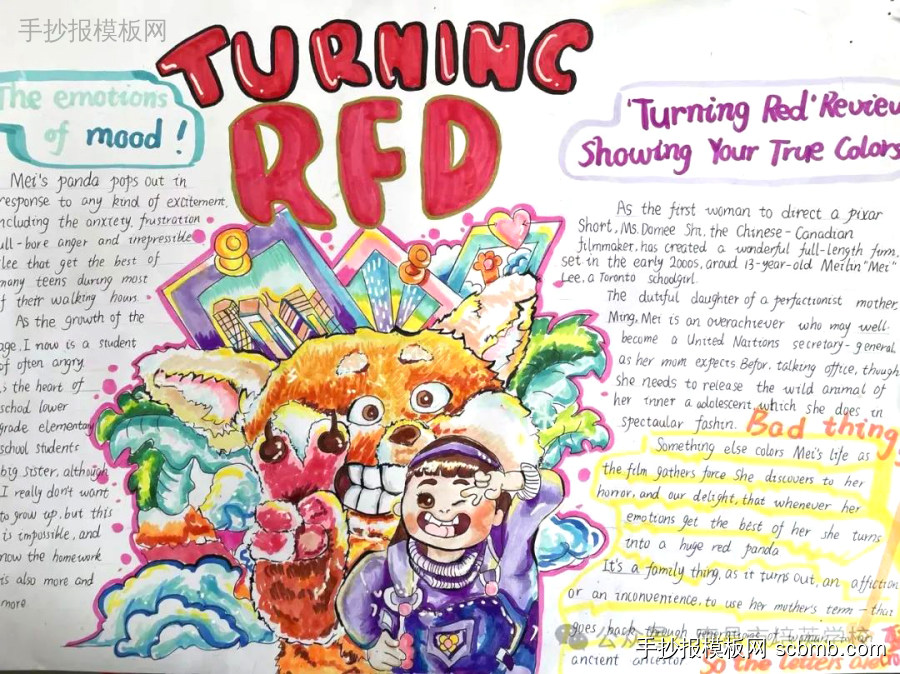 手抄报模板网
TURNING
RED
The emotions
of mood!
Mei's panda pops out in
response to any kind of excitement,
including the anxiety, frustration
ull-bore anger and irrepressible
lee that get the best of
many teens during most
f their walking hours
As the growth of the
age. I now is a student
of often angry
is the heart of
school lower
grade elementary
school students
big sister, although
I really don't want
to grow up, but this
is impossible, and
now the homework
is also more and
more
'Turning Red' Review
Showing Your True Colors
As the first woman to direct a pixar
Short, Ms. Domee Shi, the Chinese-Canadian
filmmaker, has created a wonderful full-length firm,
set in the early 2000s, aroud 13-year-old Meilin "Mei"
Lee, a Toronto schoolgirl.
The dutiful daughter of a perfactionist mother,
Ming, Mei is an overachiever who may well
become a United Nations secretary-general
as her mom expects. Befor. talking office, though
She needs to release the wild animal of
her inner a adolescent, which she does in
spectular fashin.
Bad thing
Something else colors Mei's life as
the film gathers force She discovers to her
horror, and our delight, that whenever her
emotions get the best of her she turns
into a huge red panda
It's a family thing, as it turns out, an affliction
or an inconvenience, to use her mother's term - that
goes back though
ancient ancestor
So the letters are
手抄报模板网 scbmb.com